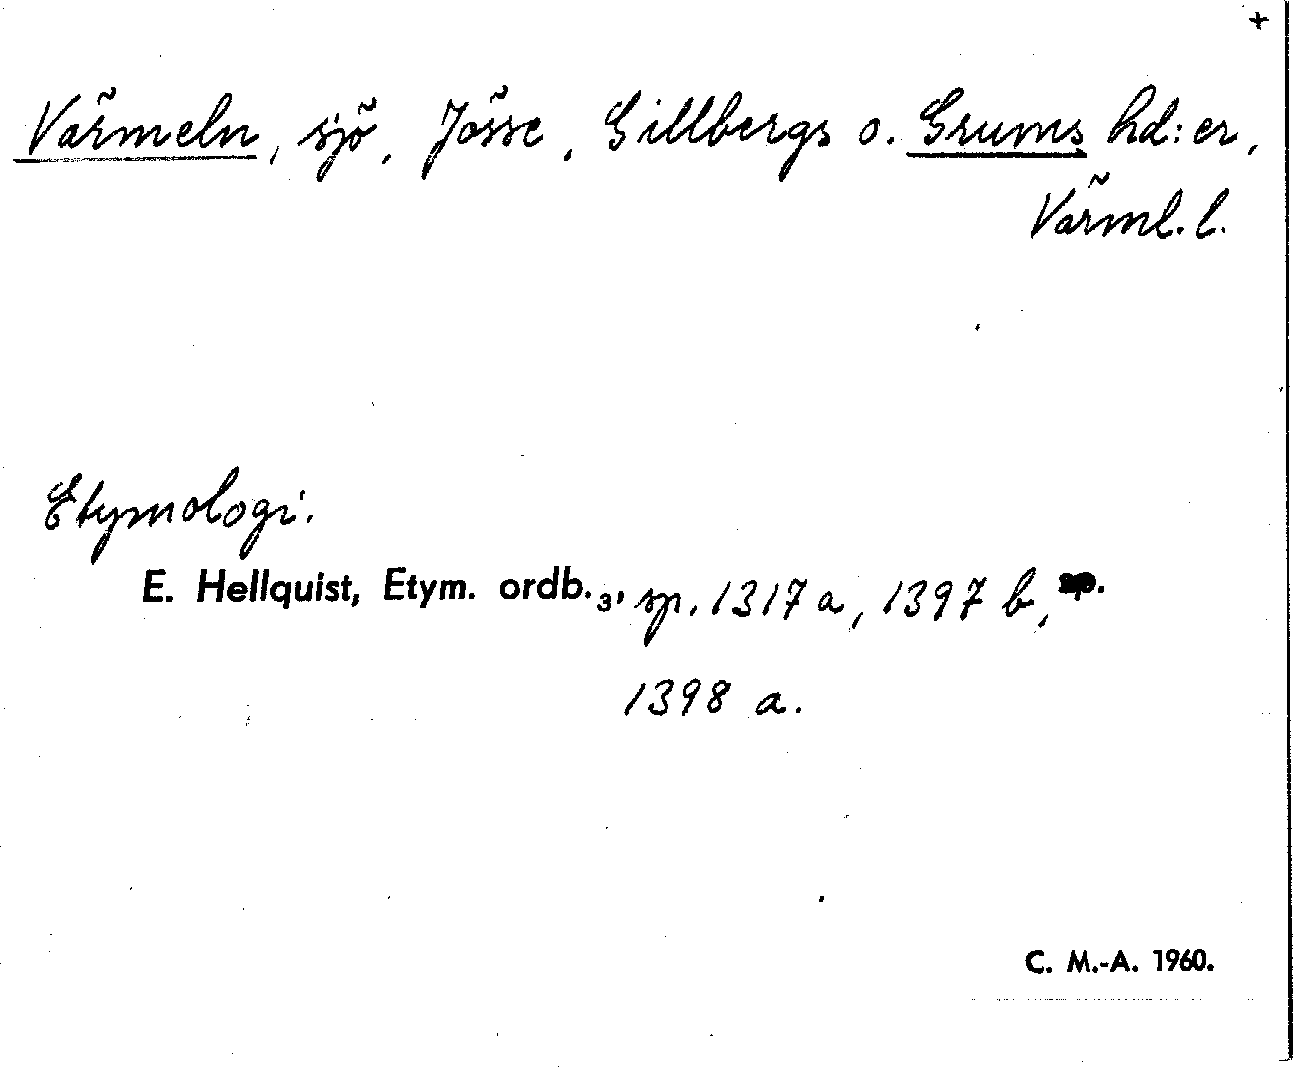 +
Värmeln, sjö, Jösse, Gillbergs o. Grums hd:er,
Värml. l.
Etymologi.
E. Hellquist, Etym. ordb.₃, sp. 1317 a, 1397 b, sp.
1398 a.
C. M.-A. 1960.